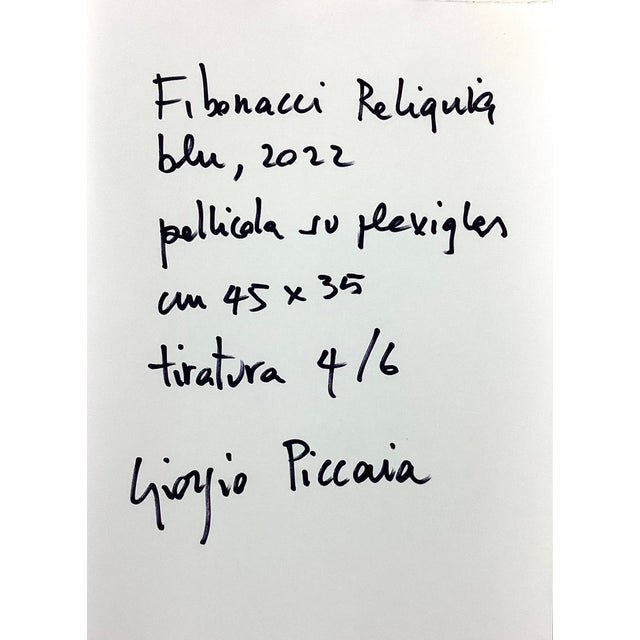 Fibonacci Reliquia
blu, 2022
pellicola su plexiglas
cm 45 x 35
tiratura 4/6
Giorgio Piccaia